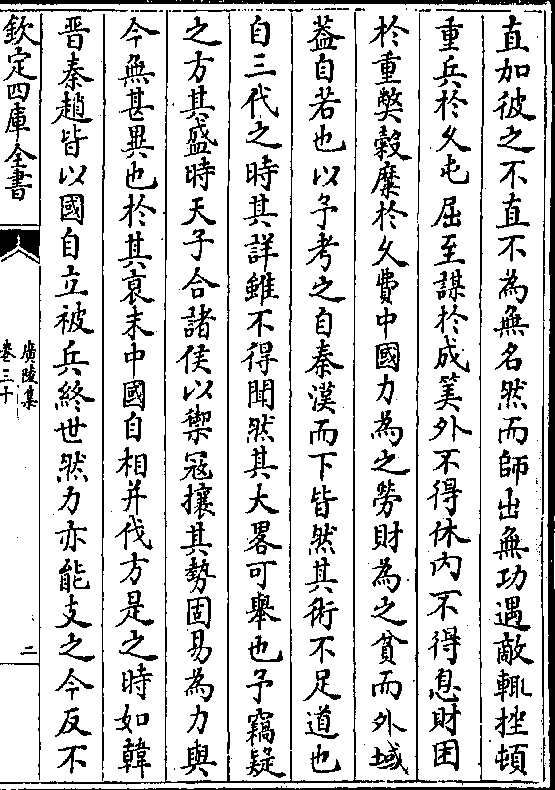 直加彼之不直不為無名然而師出無功遇敵輒挫頓
重兵於久屯屈至謀於成筭外不得休內不得息財困
於重弊穀糜於久費中國力為之勞財為之貧而外域
葢自若也以予考之自秦漢而下皆然其術不足道也
自三代之時其詳雖不得聞然其大畧可舉也予竊疑
之方其盛時天子合諸侯以禦寇攘其勢固易為力與
今無甚異也於其衰末中國自相并伐方是之時如韓
晉秦趙皆以國自立被兵終世然力亦能支之今反不
欽定四庫全書
廣陵集
卷三十
二